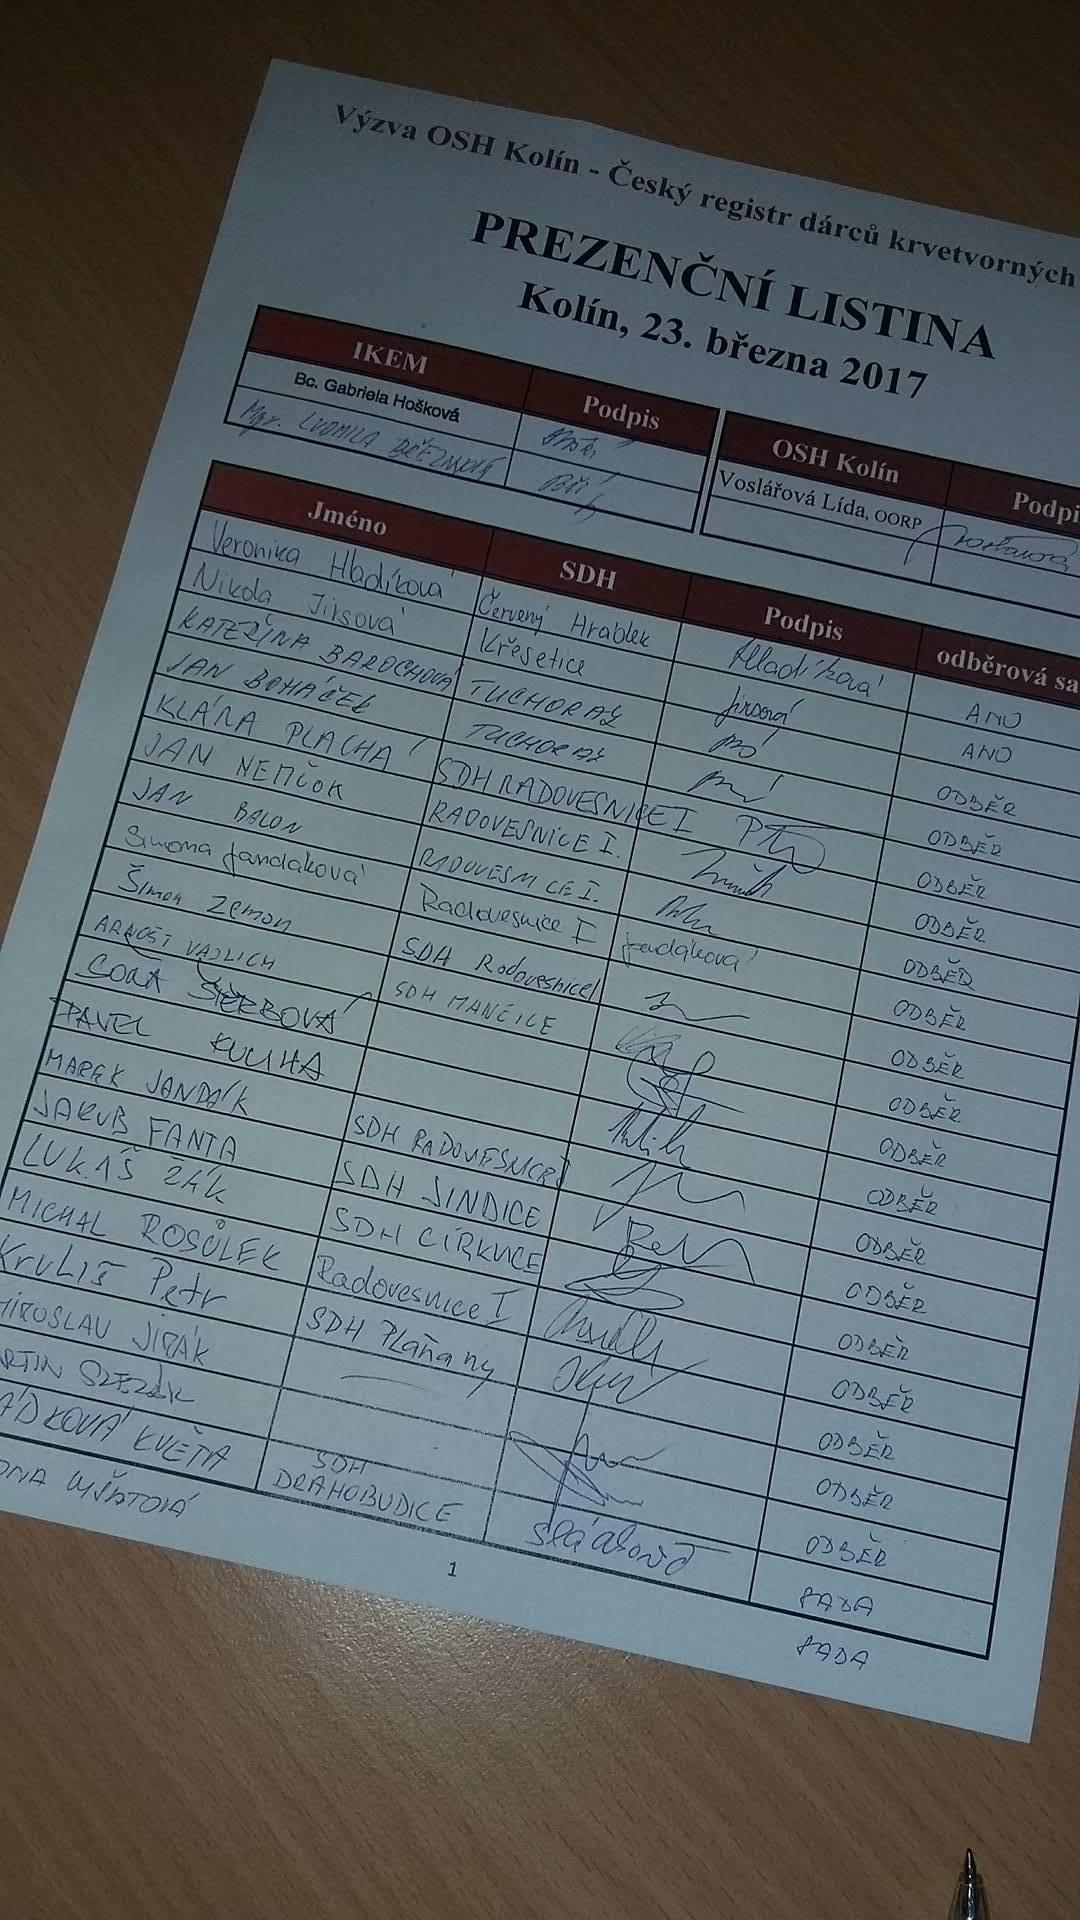 Výzva OSH Kolín - Český registr dárců krvetvorných
PREZENČNÍ LISTINA
Kolín, 23. března 2017
IKEM Podpis
Bc. Gabriela Hošková
Mgr. LUDMILA BŘEZINOVÁ
OSH Kolín Podpi
Voslářová Lída, OORP
Jméno SDH Podpis odběrová sa
Veronika Hladíková Červený Hrádek Hladíková ANO
Nikola Jirsová Křesetice Jirsová ANO
KATEŘINA BAROCHOVÁ TUCHORAZ ODBĚR
JAN BOHÁČEK TUCHORAZ ODBĚR
KLÁRA PLACHÁ SDH RADOVESNICE I ODBĚR
JAN NEMČOK RADOVESNICE I. ODBĚR
JAN BALON RADOVESNICE I. ODBĚR
Simona Jandáková Radovesnice I Jandáková ODBĚR
Šimon Zemon SDH Radovesnice I ODBĚR
ARNOŠT VAJLICH SDH MANČICE ODBĚR
ODBĚR
PAVEL KUCHA ODBĚR
MAREK JANDÁK SDH RADOVESNICE I ODBĚR
JAKUB FANTA SDH JINDICE ODBĚR
LUKÁŠ ŽÁK SDH CÍRKVICE ODBĚR
MICHAL ROSŮLEK Radovesnice I ODBĚR
Kruliš Petr SDH Plaňany ODBĚR
MIROSLAV JIRÁK ODBĚR
ODBĚR
ÁDKOVÁ KVĚTA SDH DRAHOBUDICE RADA
RADA
1